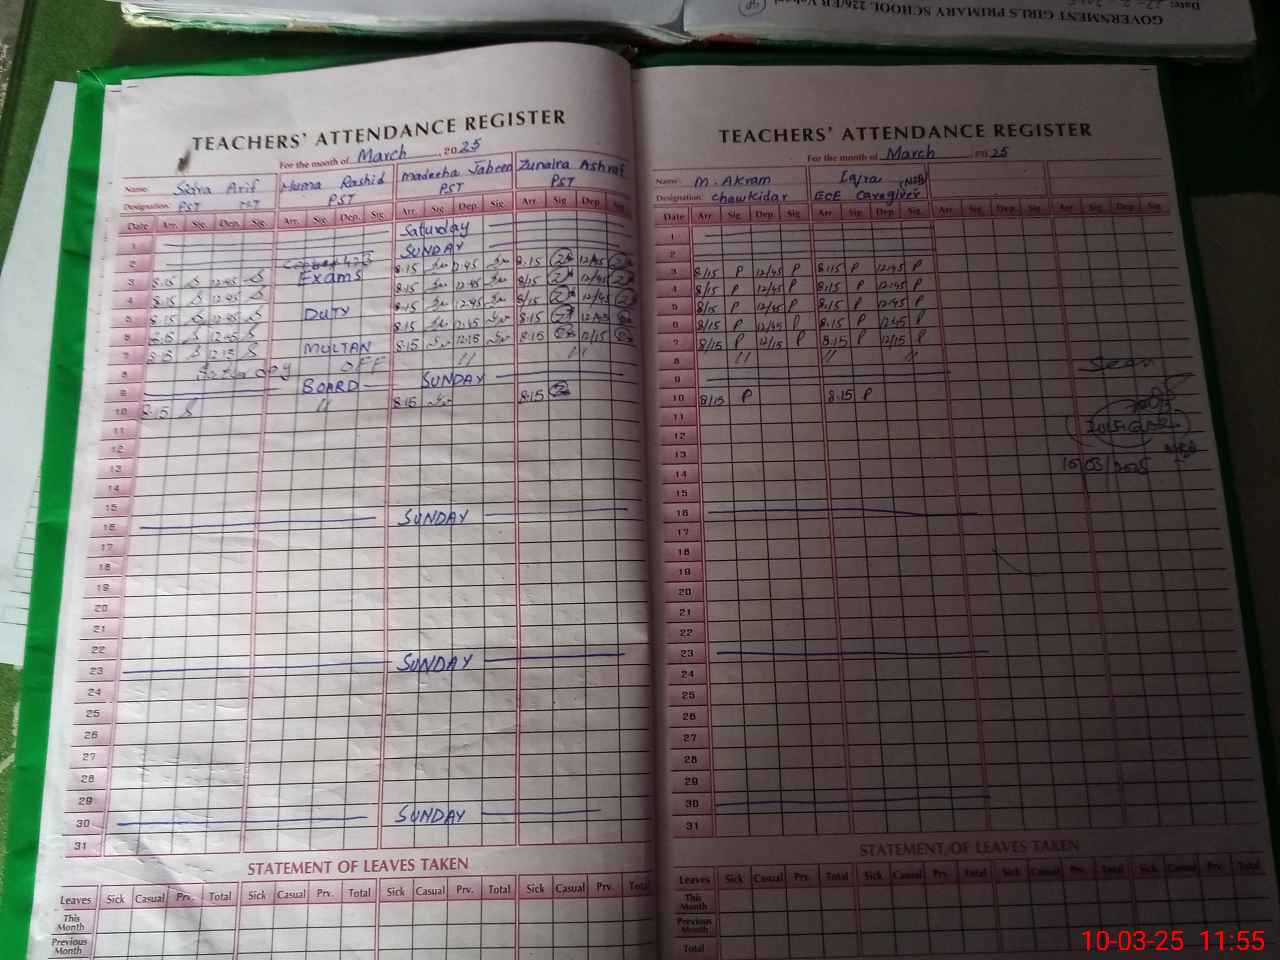 GOVERNMENT GIRLS PRIMARY SCHOOL 226/EB
Date:
TEACHERS' ATTENDANCE REGISTER
For the month of March 2025
Name: Sidra Arif Huma Rashid Madeeha Jabeen Zunaira Ashraf
Designation: PST PST PST PST
Date Arr. Sig. Dep. Sig. Arr. Sig. Dep. Sig. Arr. Sig. Dep. Sig. Arr Sig. Dep. Sig.
1 Saturday
2 SUNDAY
3 8:15 12:45 Exams 8:15 12:45 8:15 12:45
4 8:15 12:45 8:15 12:45 8/15 12/45
5 8:15 12:45 DUTY 8:15 12:45 8/15 12/45
6 8:15 12:45 8:15 12:45 8:15 12:45
7 8:15 12:15 MULTAN 8:15 12:15 8:15 12/15
8 OFF // //
9 BOARD SUNDAY
10 8:15 // 8:15 8:15
11
12
13
14
15
16 SUNDAY
17
18
19
20
21
22
23 SUNDAY
24
25
26
27
28
29
30 SUNDAY
31
STATEMENT OF LEAVES TAKEN
Leaves Sick Casual Prv. Total Sick Casual Prv. Total Sick Casual Prv. Total Sick Casual Prv. Total
This Month
Previous Month
TEACHERS' ATTENDANCE REGISTER
For the month of March 2025
Name: M. Akram Iqra (NSB)
Designation: Chowkidar ECE Caregiver
Date Arr. Sig. Dep. Sig. Arr. Sig. Dep. Sig. Arr. Sig. Dep. Sig. Arr. Sig. Dep. Sig.
1
2
3 8/15 P 12/45 P 8:15 P 12:45 P
4 8/15 P 12/45 P 8:15 P 12:45 P
5 8/15 P 12/45 P 8:15 P 12:45 P
6 8/15 P 12/45 P 8:15 P 12:45 P
7 8/15 P 12/15 P 8:15 P 12/15 P
8 // // //
9
10 8/15 P 8:15 P
11
12
13
14
15
16
17
18
19
20
21
22
23
24
25
26
27
28
29
30
31
Seen
10/03/2025
STATEMENT OF LEAVES TAKEN
Leaves Sick Casual Prv. Total Sick Casual Prv. Total Sick Casual Prv. Total Sick Casual Prv. Total
This Month
Previous Month
Total
10-03-25 11:55